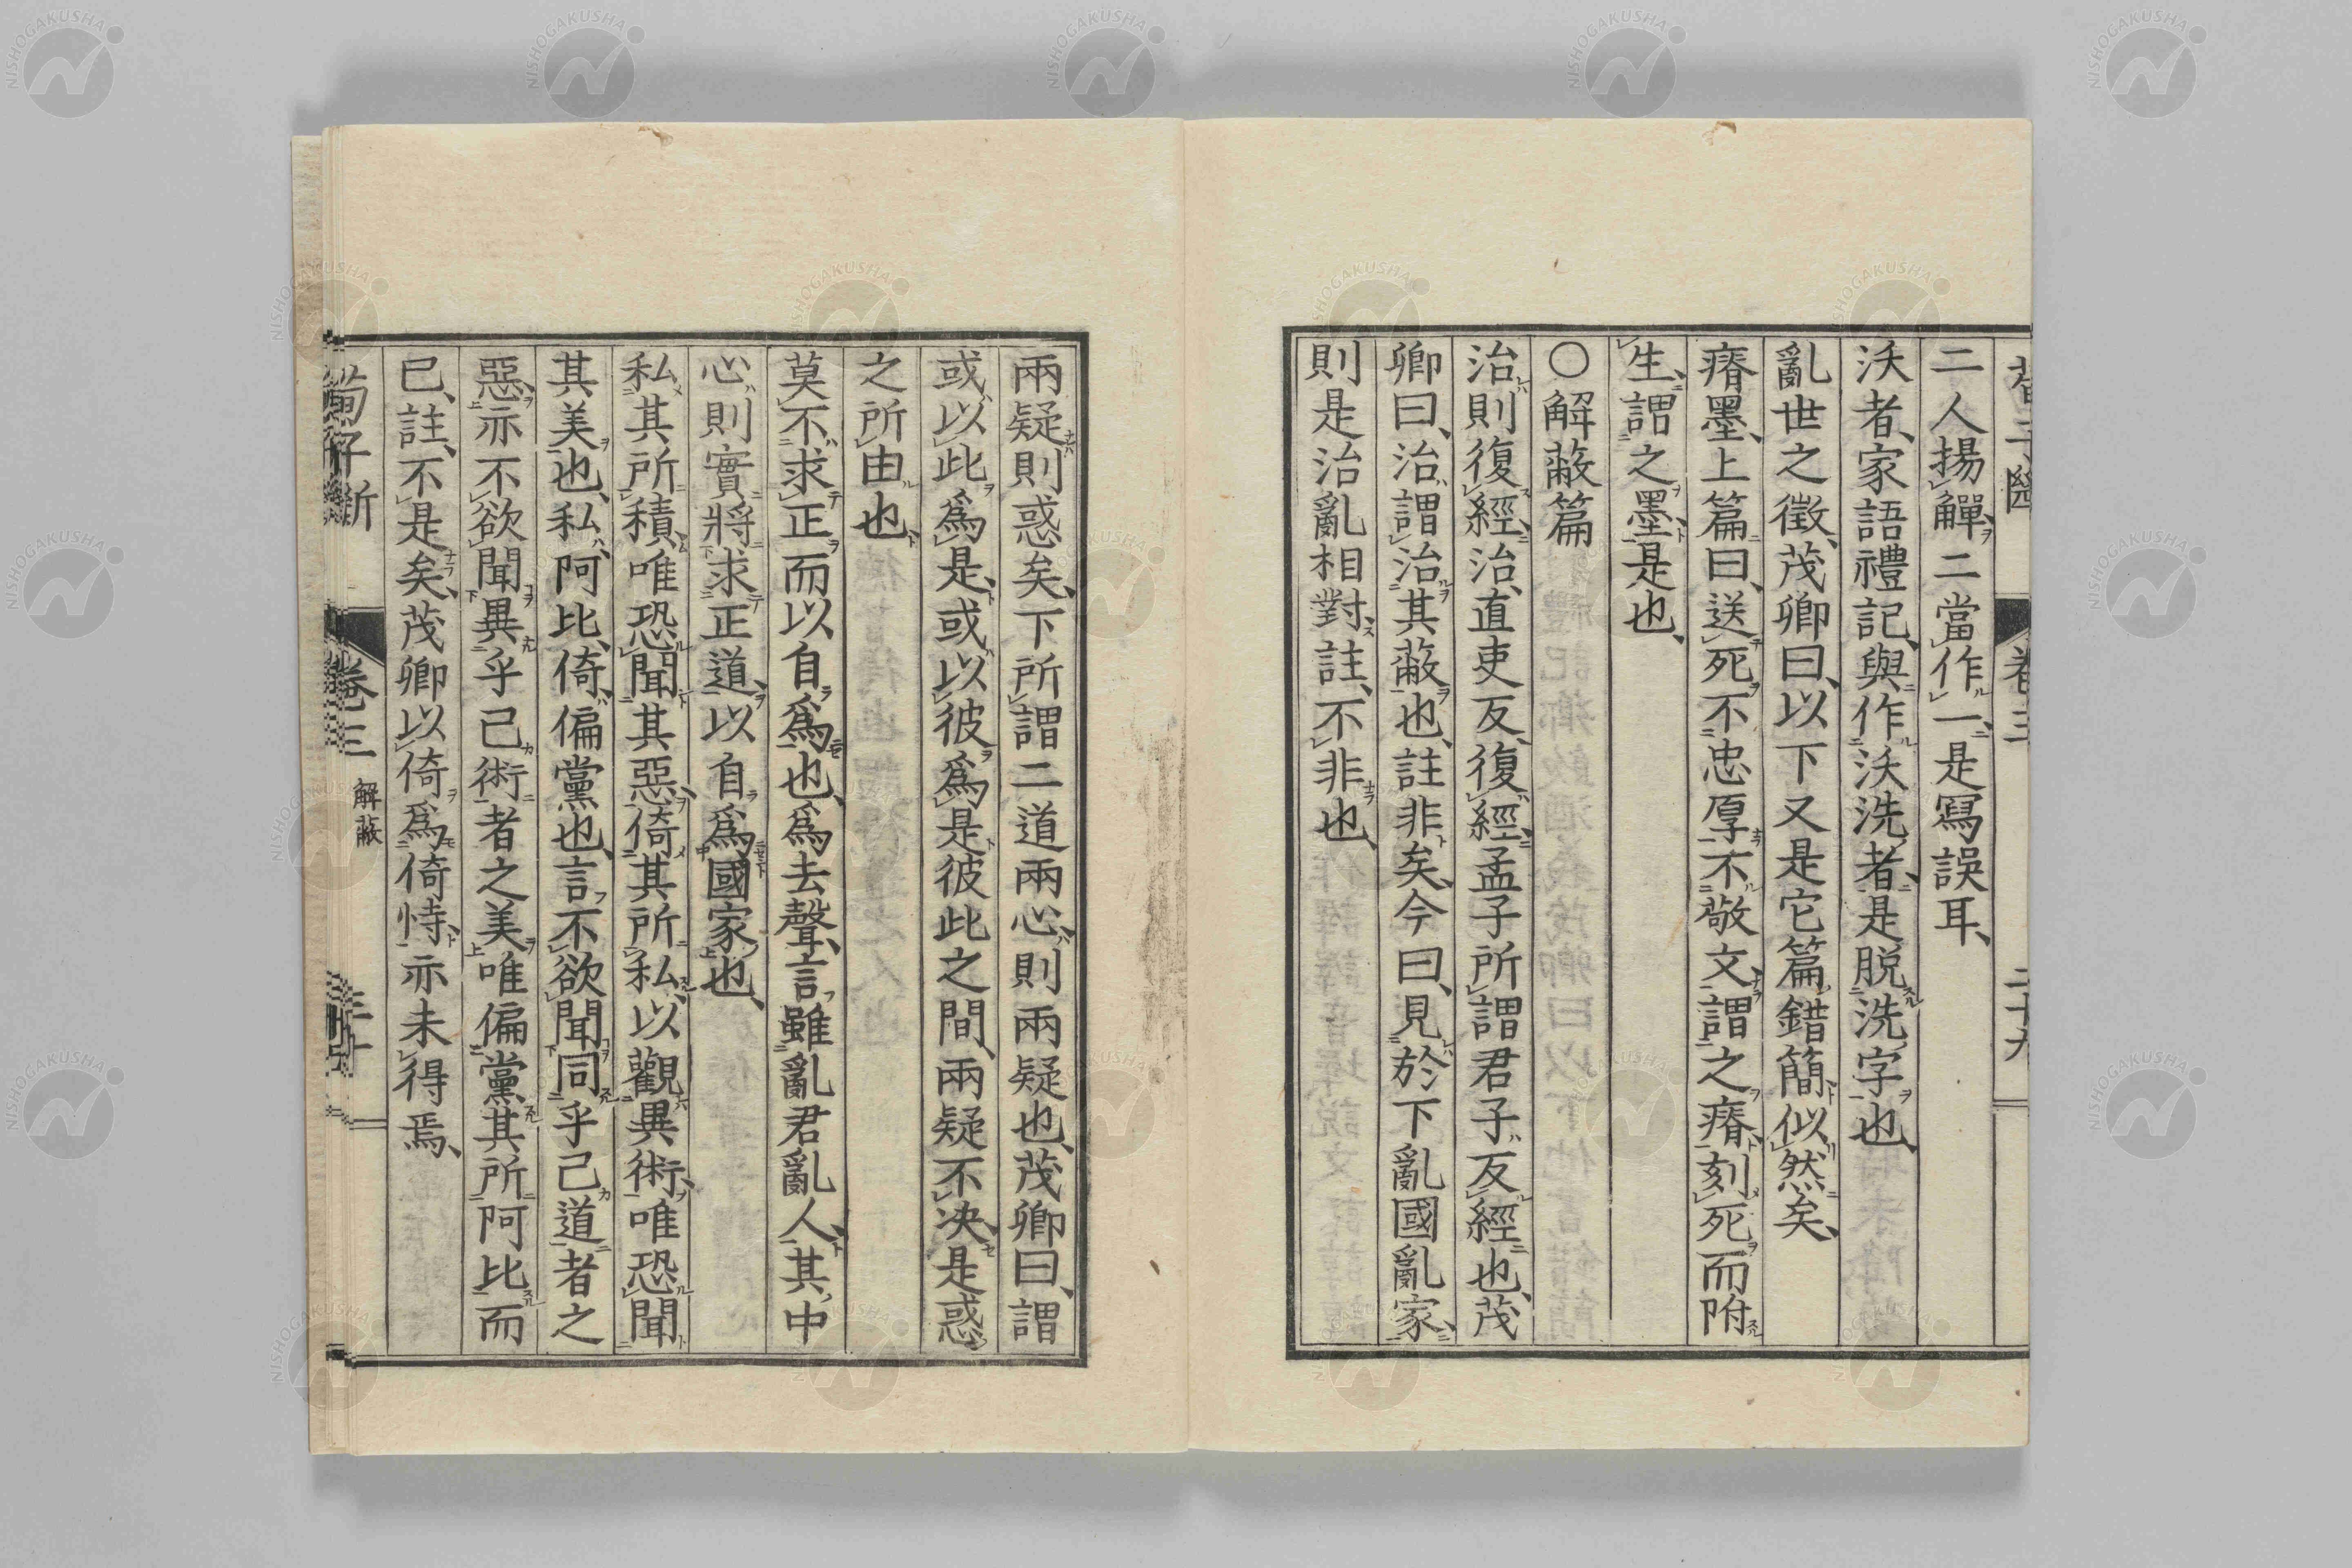 二人揚觶、二當作一、是寫誤耳、
沃者、家語禮記、與作沃洗者、是脱洗字也、
亂世之徴、茂卿曰、以下又是它篇錯簡、似然矣、
瘠墨、上篇曰、送死不忠厚不敬文、謂之瘠、刻死而附
生、謂之墨、是也、
〇解蔽篇
治則復經、治、直吏反、復經、孟子所謂君子反經也、茂
卿曰、治、謂治其蔽也、註非矣、今曰、見於下亂國亂家、
則是治亂相對、註、不非也、
兩疑則惑矣、下所謂二道兩心、則兩疑也、茂卿曰、謂
或以此爲是、或以彼爲是、彼此之間、兩疑不决、是惑
之所由也、
莫不求正而以自爲也、爲去聲、言雖亂君亂人、其中
心則實將求正道、以自爲國家也、
私其所積、唯恐聞其惡、倚其所私、以觀異術、唯恐聞
其美也、私、阿比、倚、偏黨也、言不欲聞同乎己道者之
惡、亦不欲聞異乎己術者之美、唯偏黨其所阿比而
已、註、不是矣、茂卿以倚爲倚恃、亦未得焉、
卷三 解蔽